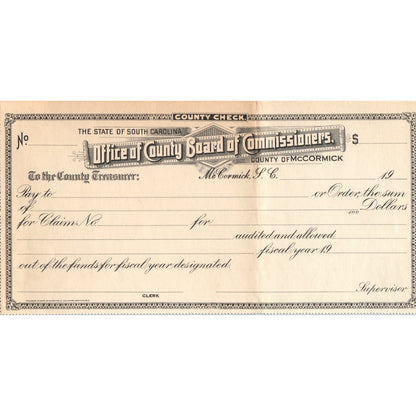 COUNTY CHECK.
THE STATE OF SOUTH CAROLINA
No
Office of County Board of Commissioners.
$
COUNTY OF McCORMICK
To the County Treasurer:
McCormick, S. C. 19
Pay to or Order, the sum
of 100 Dollars
for Claim No. for audited and allowed
fiscal year 19
out of the funds for fiscal year designated.
CLERK
Supervisor